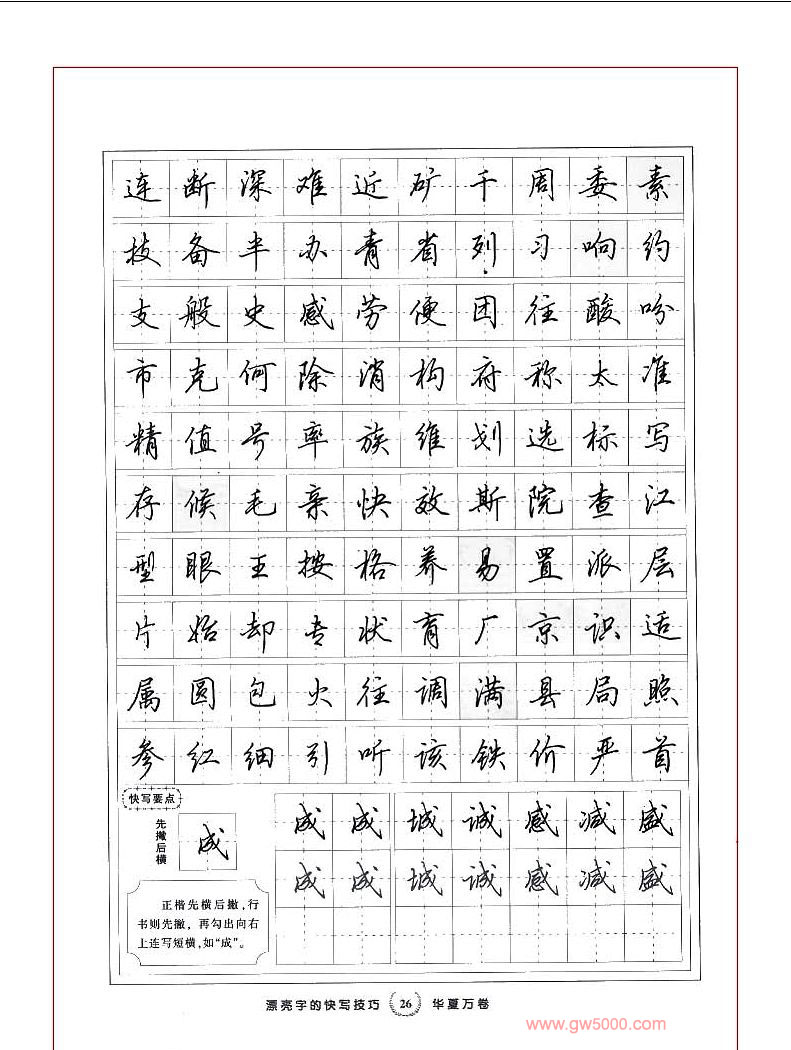 连断深难近矿千周委素
技备半办青省列习响约
支般史感劳便团往酸吩
市克何除消构府称太准
精值号率族维划选标写
存候毛亲快效斯院查江
型眼王按格养易置派层
片始却专状育厂京识适
属圆包火往调满县局照
参红细引听该铁价严首
快写要点
先撇后横
成
正楷先横后撇,行
书则先撇,再勾出向右
上连写短横,如“成”。
成成城诚感减盛
成成城诚感减盛
漂亮字的快写技巧 26 华夏万卷
www.gw5000.com